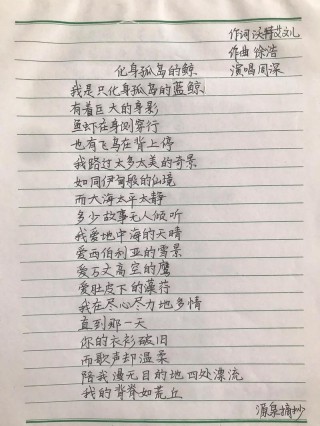 作词 沃特艾文儿
作曲 徐浩
化身孤岛的鲸
演唱 周深
我是只化身孤岛的蓝鲸
有着巨大的身影
鱼虾在身侧穿行
也有飞鸟在背上停
我路过太多太美的奇景
如同伊甸般的仙境
而大海太平太静
多少故事无人倾听
我爱地中海的天晴
爱西伯利亚的雪景
爱万丈高空的鹰
爱肚皮下的藻荇
我在尽心尽力地多情
直到那一天
你的衣衫破旧
而歌声却温柔
陪我漫无目的地四处漂流
我的背脊如荒丘
源泉摘抄